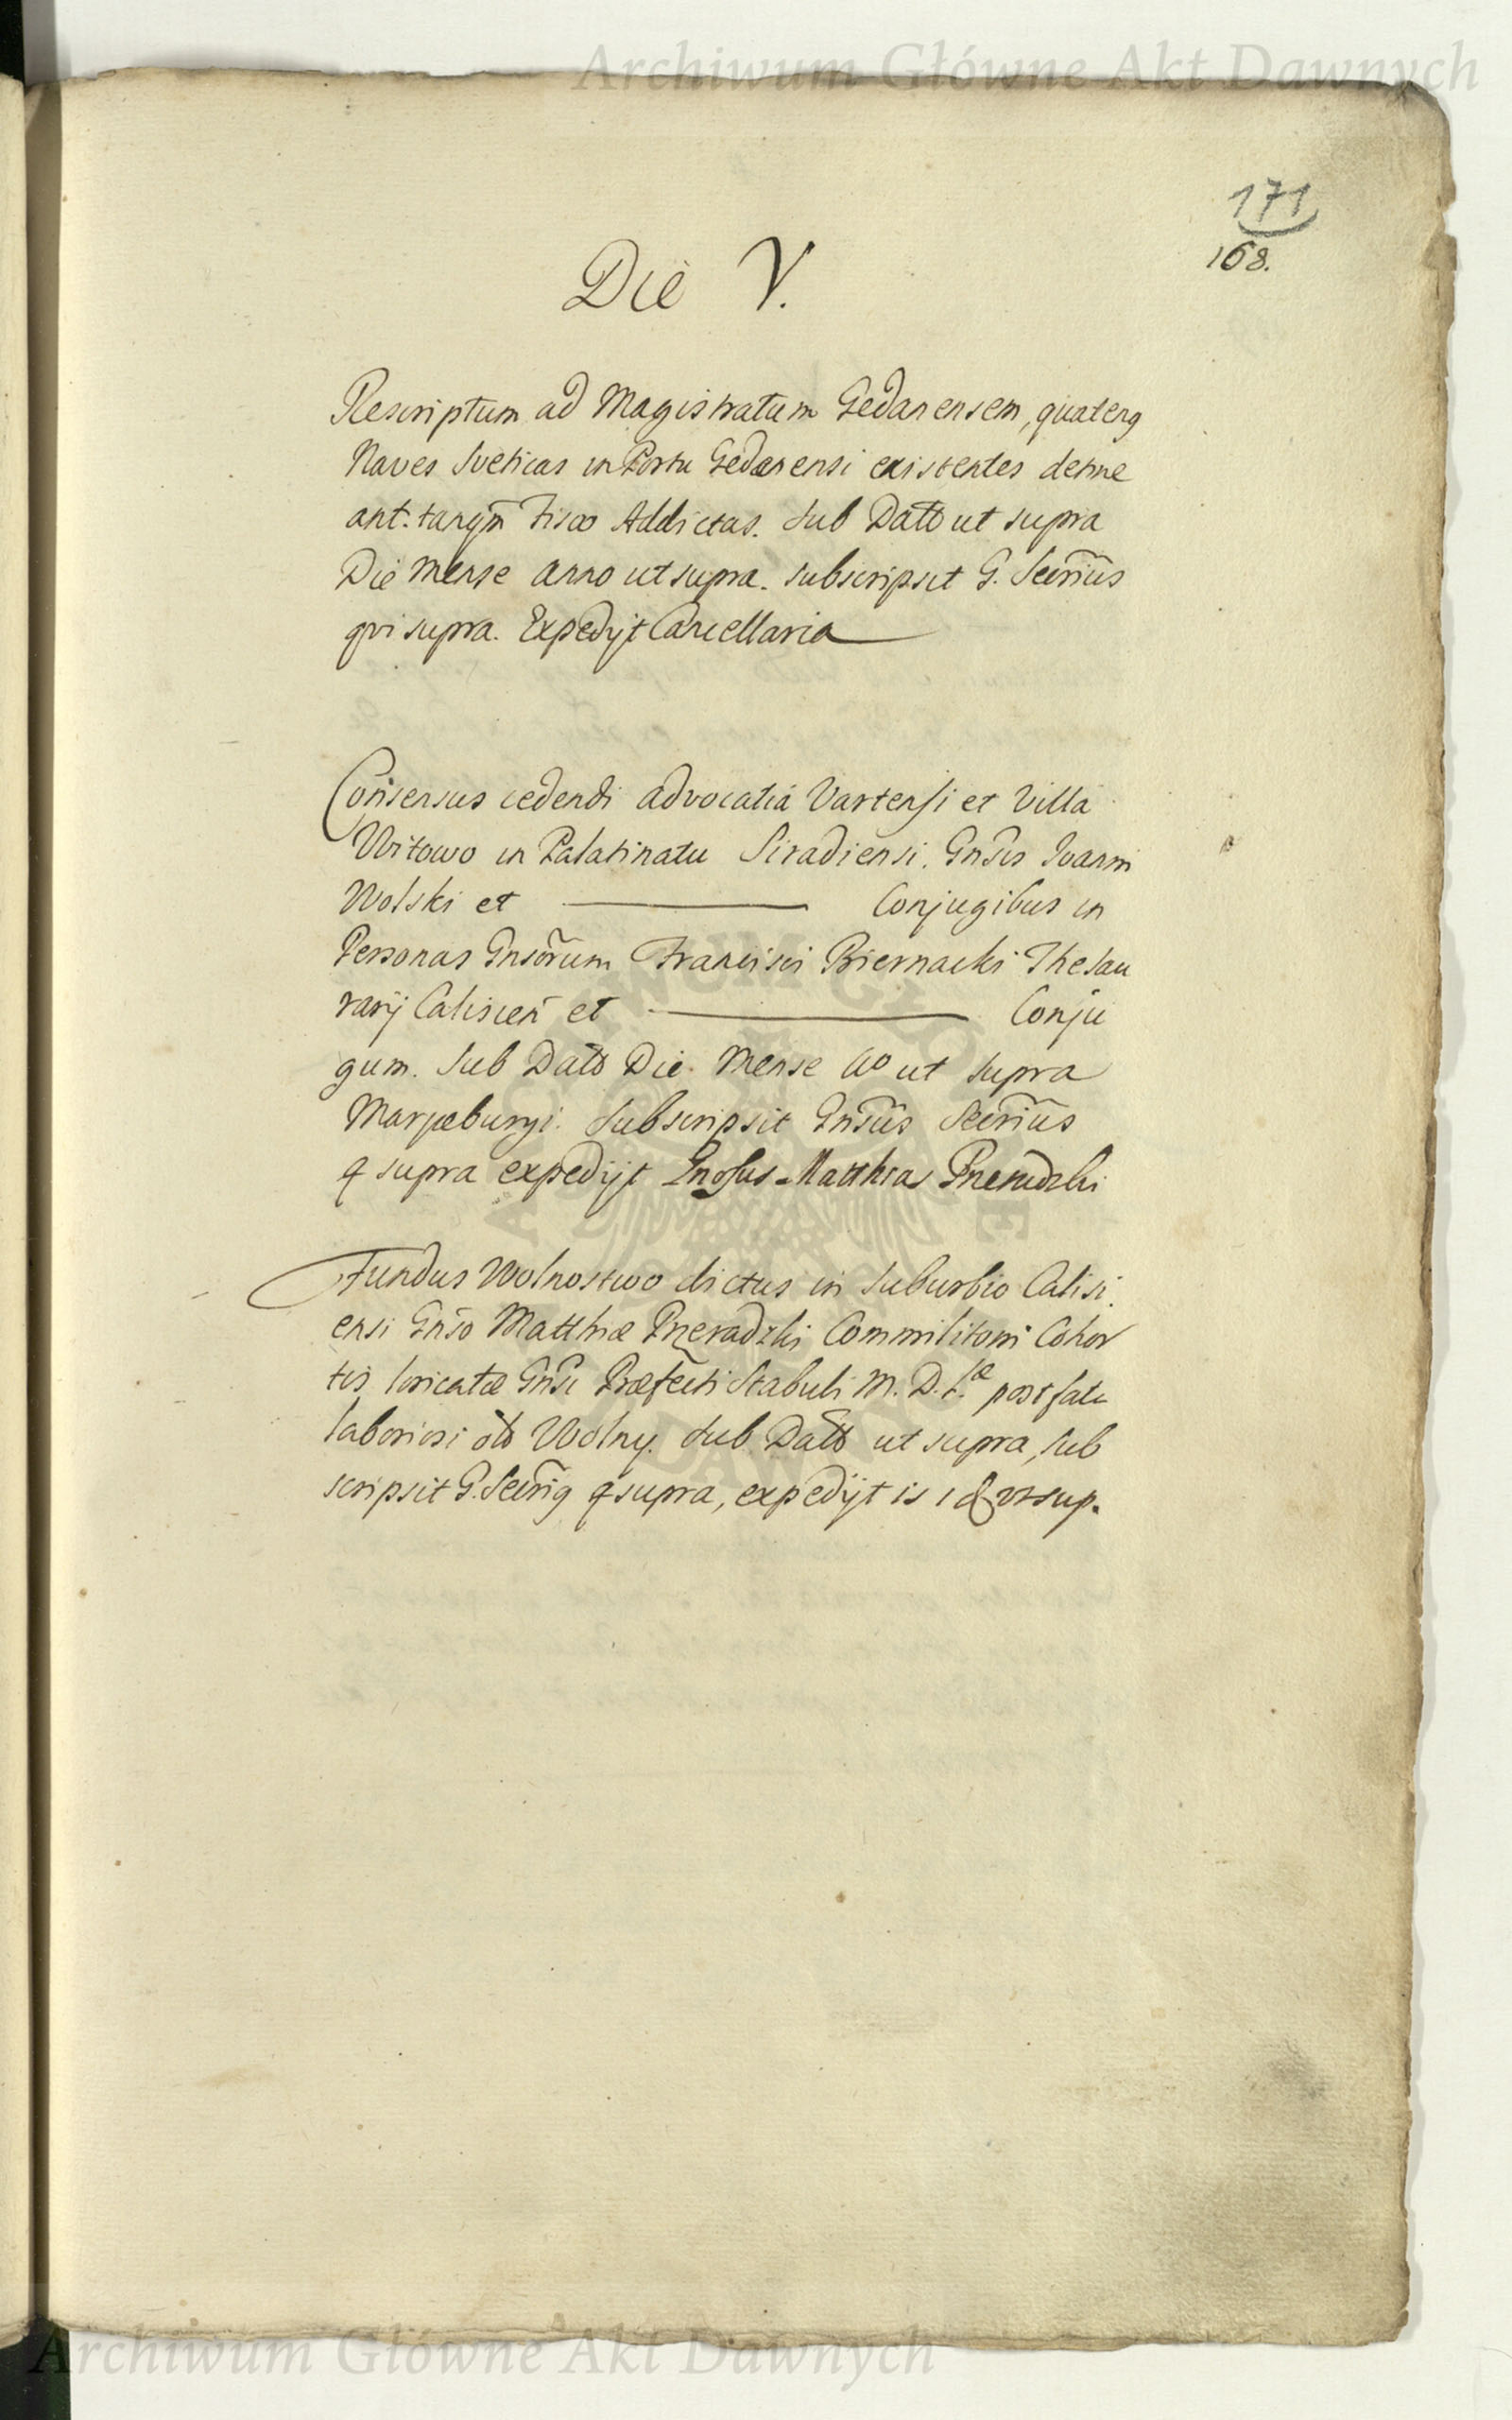 Archiwum Główne Akt Dawnych
171
168.
Die V.
Rescriptum ad Magistratum Gedanensem, quateng
Naves Sveticas in Portu Gedanensi existentes detine
ant. tanqm̃ Fisco Addictas. Sub Datt̃o ut supra
Die Mense Anno ut supra. Subscripsit G. Secrĩus
qvi supra. Expedijt Cancellaria
Consensus cedendi advocatiâ Vartensi et Villâ
Witowo in Palatinatu Siradiensi. Gnsis Ioanni
Wolski et Conjugibus in
Personas Gnsõrum Francisci Biernacki Thesau
rarij Calisien̄ et Conju
gum. Sub Datto Die Mense Ao ut supra
Marjæburgi. Subscripsit Gnsũs Secrĩus
q supra expedijt Gnosus Matthias
Fundus Wolnostwo dictus in Suburbio Calisi.
ensi Gnso Matthiæ Przeradzki Commilitoni Cohor
tis loricatæ Gnsi Præfecti Stabuli M. D. L.æ post fata
laboriosi olo Wolny. Sub Datto ut supra, sub
scripsit G. Secrĩg q supra, expedijt is sup.
Archiwum Główne Akt Dawnych